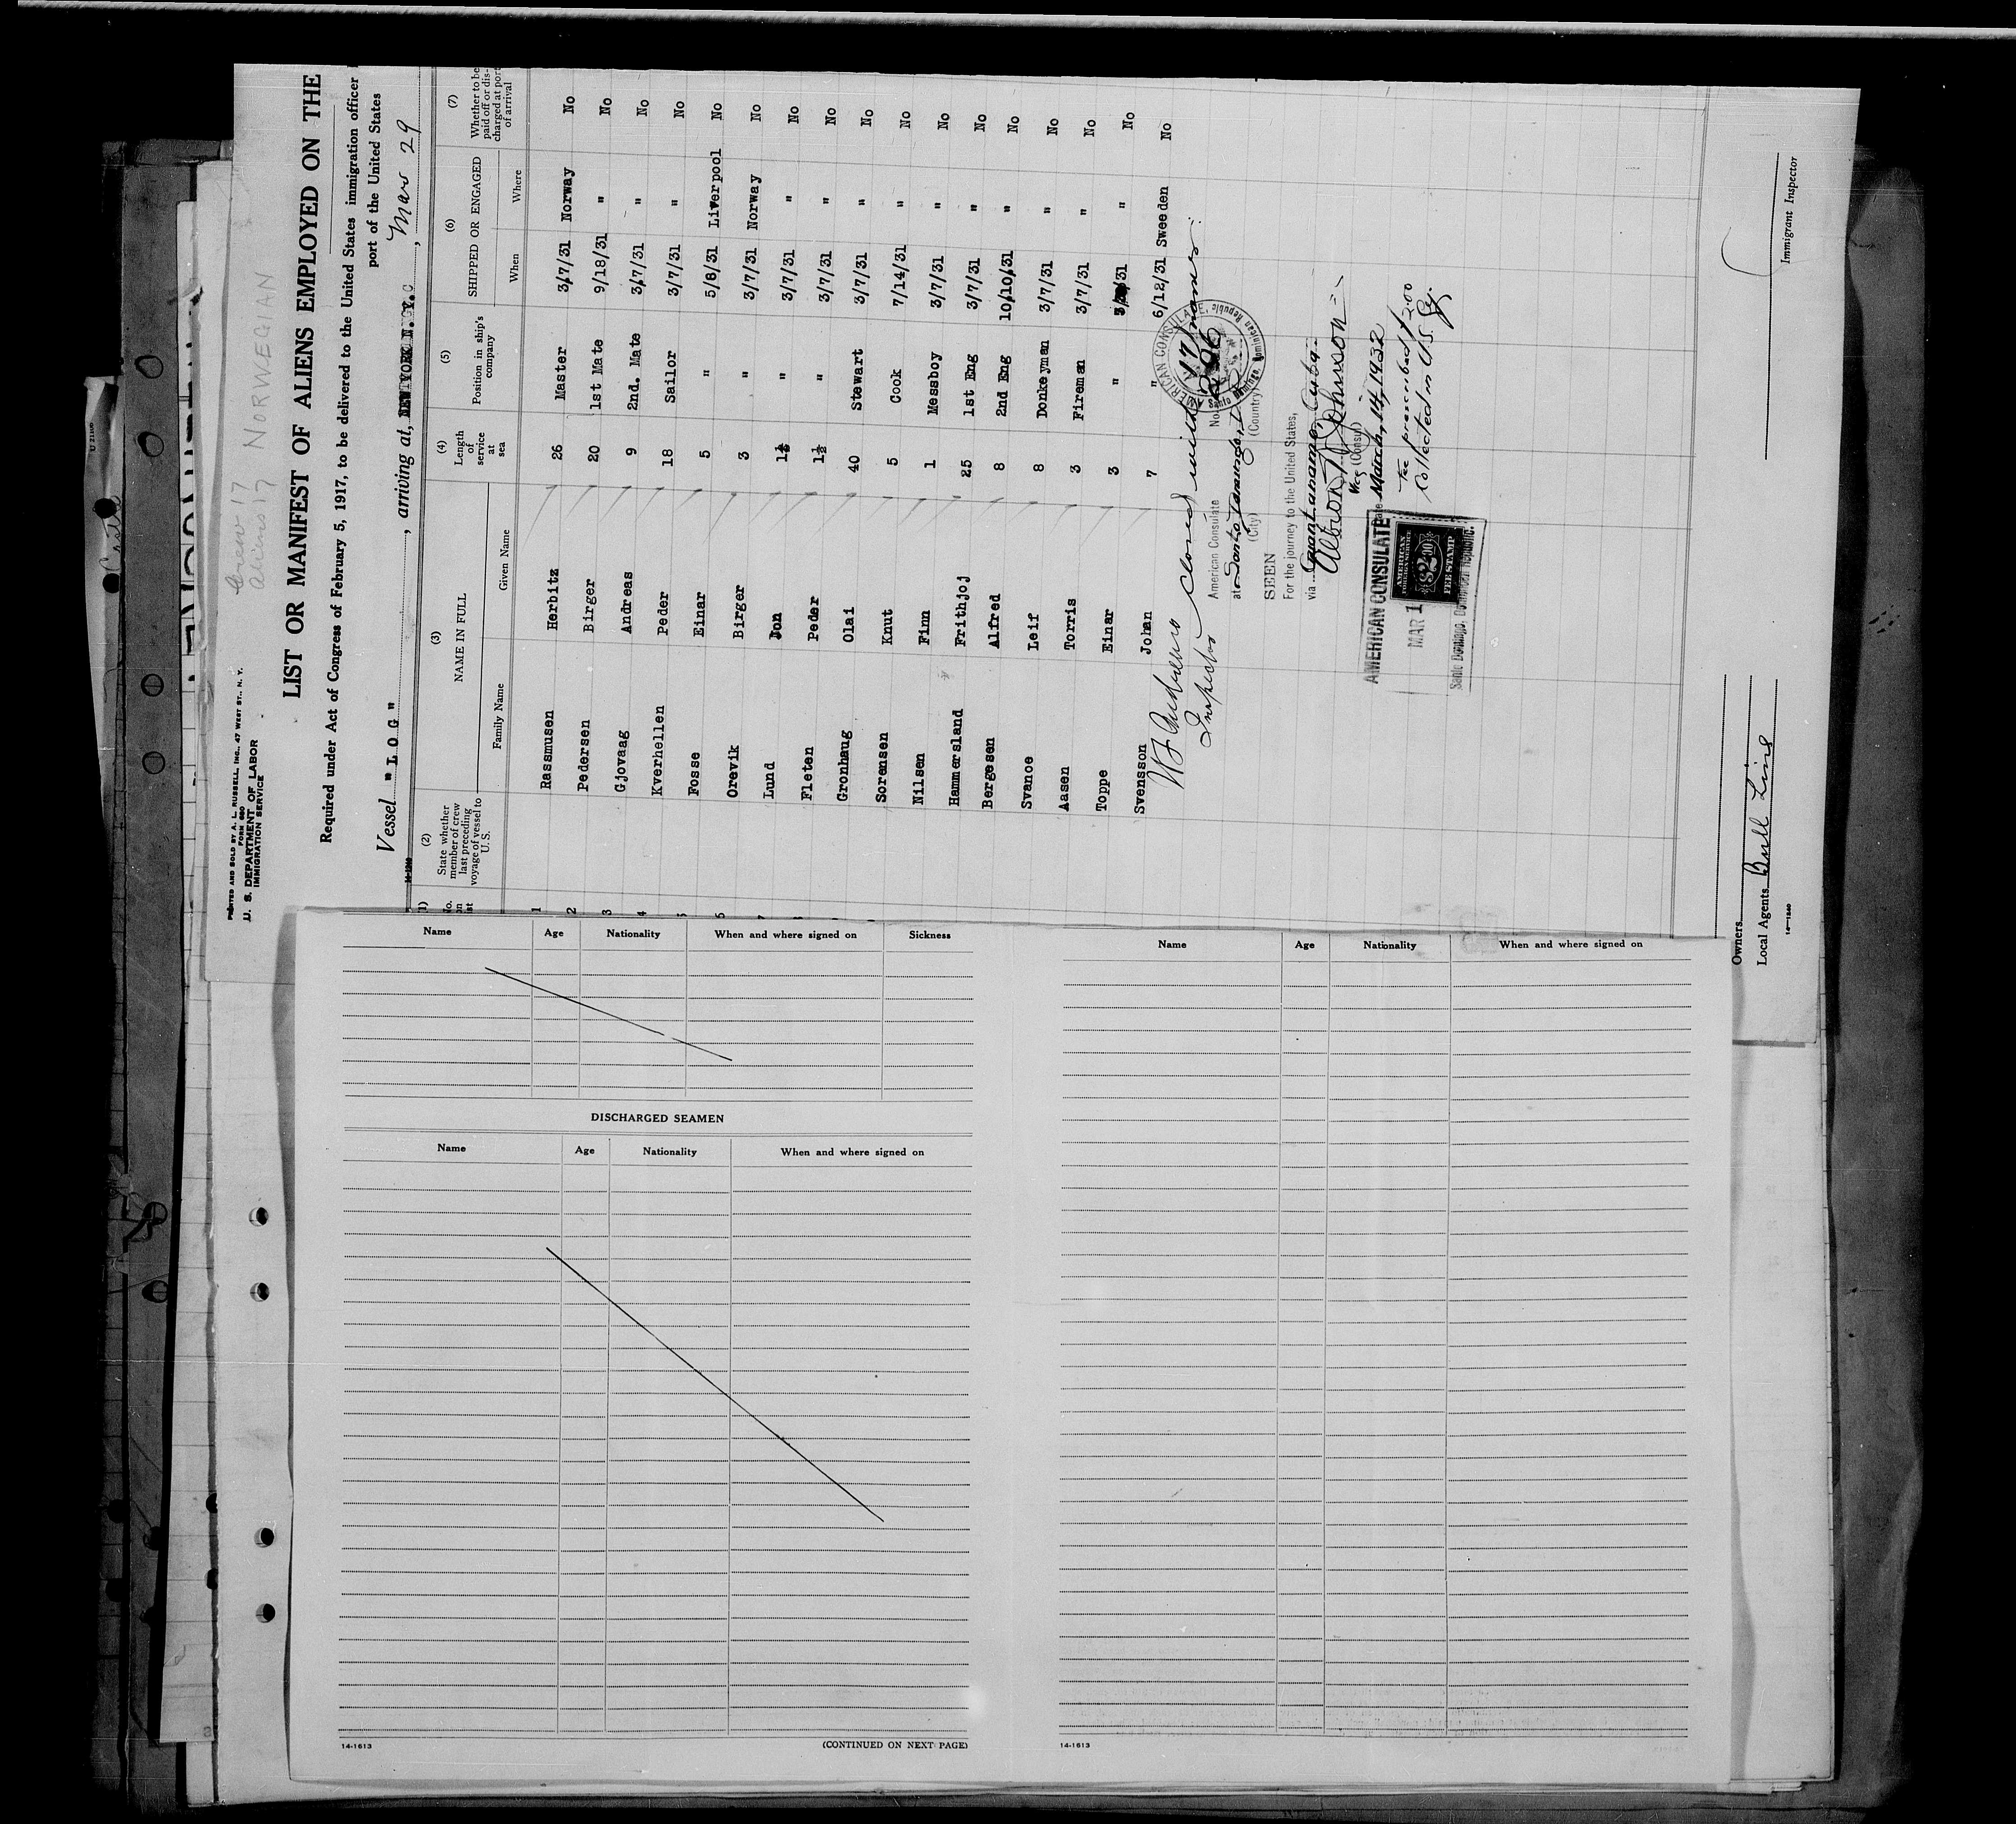 Crew 17 NORWEGIAN
Aliens 17
PRINTED AND SOLD BY A. L. RUSSELL, INC., 47 WEST ST., N. Y.
FORM 680
U. S. DEPARTMENT OF LABOR
IMMIGRATION SERVICE
LIST OR MANIFEST OF ALIENS EMPLOYED ON THE
Required under Act of Congress of February 5, 1917, to be delivered to the United States immigration officer
port of the United States
Vessel " L O G ", arriving at, NEW YORK N. Y., Mar 29
14-1240
(1) (2) (3) (4) (5) (6) (7)
State whether member of crew last preceding voyage of vessel to U.S.
NAME IN FULL
Family Name Given Name
Length of service at sea
Position in ship's company
SHIPPED OR ENGAGED
When Where
Whether to be paid off or discharged at port of arrival
1 Rasmusen Herbitz 26 Master 3/7/31 Norway No
2 Pedersen Birger 20 1st Mate 9/18/31 " No
3 Gjovaag Andreas 9 2nd. Mate 3/7/31 " No
4 Kverhellen Peder 18 Sailor 3/7/31 " No
5 Fosse Einar 5 " 5/8/31 Liverpool No
Orevik Birger 3 " 3/7/31 Norway No
Lund Jon 1½ " 3/7/31 " No
Fleten Peder 1½ " 3/7/31 " No
Gronhaug Olai 40 Stewart 3/7/31 " No
Sorensen Knut 5 Cook 7/14/31 " No
Nilsen Finn 1 Messboy 3/7/31 " No
Hammersland Frithjoj 25 1st Eng 3/7/31 " No
Bergesen Alfred 8 2nd Eng 10/10/31 " No
Svanoe Leif 8 Donkeyman 3/7/31 " No
Aasen Torris 3 Fireman 3/7/31 " No
Toppe Einar 3 " " No
Svensson Johan 7 " 6/12/31 Sweeden No
Inspector
closed with 17 names.
AMERICAN CONSULATE
Santo Domingo, Dominican Republic
American Consulate No.
at Santo Domingo,
(City) (Country)
SEEN
For the journey to the United States,
via Guantanamo, Cuba
Johnson
Vice (Consul)
Date March, 14, 1932
Fee prescribed $2.00
Collected in U.S. Gy.
AMERICAN CONSULATE
MAR 1
Santo Domingo, Dominican Republic.
AMERICAN
FOREIGN SERVICE
$2.00
FEE STAMP
Owners
Local Agents Bull Line
14-1240
Immigrant Inspector
Name Age Nationality When and where signed on Sickness
DISCHARGED SEAMEN
Name Age Nationality When and where signed on
14-1613 (CONTINUED ON NEXT PAGE)
Name Age Nationality When and where signed on
14-1613